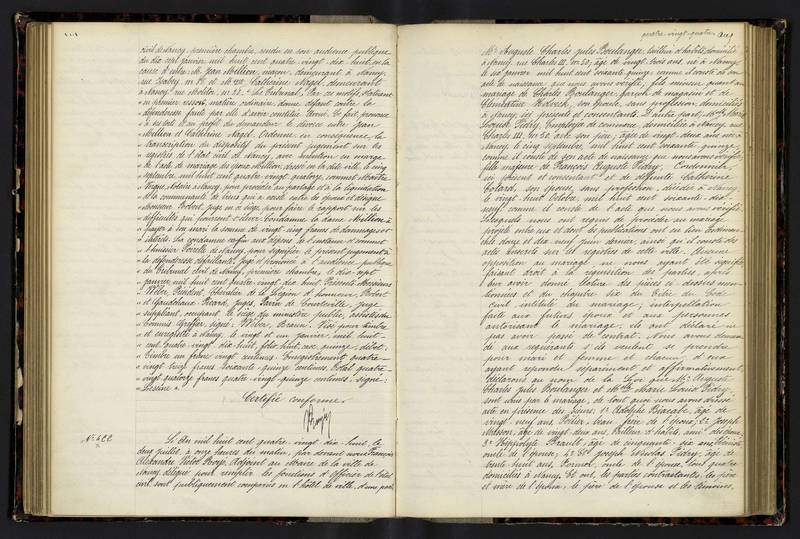 civil de Nancy, première chambre, rendu en son audience publique
du dix sept janvier mil huit cent quatre vingt dix huit, en la
cause d'entre Mr Jean Million, maçon, demeurant à Nancy
rue Isabey et Mme Catherine Nagel, demeurant
à Nancy, rue Molitor, no Le Tribunal, Par ces motifs, Statuant
en premier ressort, matière ordinaire, donne défaut contre la
défenderesse faute par elle d'avoir constitué Avoué. Ce fait, prononce
et au profit du demandeur le divorce entre Jean
Million et Catherine Nagel. Ordonne en conséquence, la
transcription du dispositif du présent jugement sur les
registres de l'état civil de Nancy, avec mention en marge
de l'acte de mariage des époux Million, dressé en la dite ville, le cinq
septembre, mil huit cent quatre vingt quatorze, commet Maître
notaire à Nancy, pour procéder au partage et à la liquidation
de la communauté de biens qui a existé entre les époux et désigne
Monsieur juge en ce siège, pour faire le rapport sur les
difficultés qui pourront s'élever. Condamne la dame Million à
payer à son mari la somme de vingt cinq francs de dommages et
intérêts. La condamne enfin aux dépens de l'instance et commet
l'huissier de Nancy, pour signifier le présent jugement à
la défenderesse défaillante. Jugé et prononcé à l'audience publique
du Tribunal civil de Nancy, première chambre, le dix-sept
janvier mil huit cent quatre vingt dix huit. Présents Messieurs
Président, Chevalier de la Légion d'honneur,
et Gaudchaux Picard, juges, de juge
suppléant, occupant le siège du ministère public, assistés de
Commis Greffier, signé: Visé pour timbre
et enregistré à Nancy, le vingt et un janvier, mil huit
cent quatre vingt dix huit, folio huit, case quinze, débet
Timbre un franc vingt centimes. Enregistrement quatre
vingt treize francs soixante quinze centimes. Total quatre
vingt quatorze francs quatre vingt quinze centimes, signé:
Certifié conforme.
No 422
L'An mil huit cent quatre vingt dix huit, le
deux juillet, à onze heures du matin, par devant nous François
Alexandre Victor Adjoint au Maire de la ville de
Nancy, délégué pour remplir les fonctions d'Officier de l'état
civil, sont publiquement comparus en l'hôtel de ville, d'une part,
quatre-vingt-quatre
Mr Auguste Charles Jules Boulanger, tailleur d'habits, domicilié
à Nancy, rue Charles III, no âgé de vingt trois ans, né à Nancy
le six janvier mil huit cent soixante quinze comme il conste de son
acte de naissance que nous avons vérifié, fils mineur quant au
mariage de Charles Boulanger, garçon de magasin et de
Clémentine son épouse, sans profession, domiciliés
à Nancy, ici présents et consentants. D'autre part, Mlle Marie
Louise Pidry, employée de commerce, domiciliée à Nancy, rue
Charles III, no avec son père, âgée de vingt deux ans, née à
Nancy le cinq septembre, mil huit cent soixante quinze,
comme il conste de son acte de naissance que nous avons vérifié,
fille majeure de François Auguste Pidry, Cordonnier,
ici présent et consentant et de défunte Catherine
Colard, son épouse, sans profession, décédée à Nancy
le vingt huit Octobre, mil huit cent soixante dix
neuf comme il conste de l'acte que nous avons vérifié.
Lesquels nous ont requis de procéder au mariage
projeté entre eux et dont les publications ont eu lieu les dimanches
douze et dix neuf juin dernier, ainsi qu'il conste des
actes inscrits sur les registres de cette ville. Aucune
opposition au mariage ne nous ayant été signifiée
faisant droit à la réquisition des parties, après
leur avoir donné lecture des pièces ci-dessus men-
tionnées et du chapitre six du titre du Code
civil intitulé du mariage, interpellation
faite aux futurs époux et aux personnes
autorisant le mariage, ils ont déclaré ne
pas avoir passé de contrat. Nous avons deman-
dé aux requérants s'ils veulent se prendre
pour mari et femme et chacun d'eux
ayant répondu séparément et affirmativement,
déclarons au nom de la Loi que Mr Auguste
Charles Jules Boulanger et Mlle Marie Louise Pidry
sont unis par le mariage, de tout quoi nous avons dressé
acte en présence des Sieurs: 1° Adolphe âgé de
vingt neuf ans, beau frère de l'époux; 2° Joseph
Masson, âgé de vingt deux ans, Tailleur d'habits, ami des époux;
3° Hippolyte Brault, âgé de cinquante six ans,
oncle de l'épouse; 4° et Joseph Nicolas Pidry, âgé de
trente huit ans, oncle de l'épouse, tous quatre
domiciliés à Nancy et ont, les parties contractantes, les père
et mère de l'époux, le père de l'épouse et les témoins,